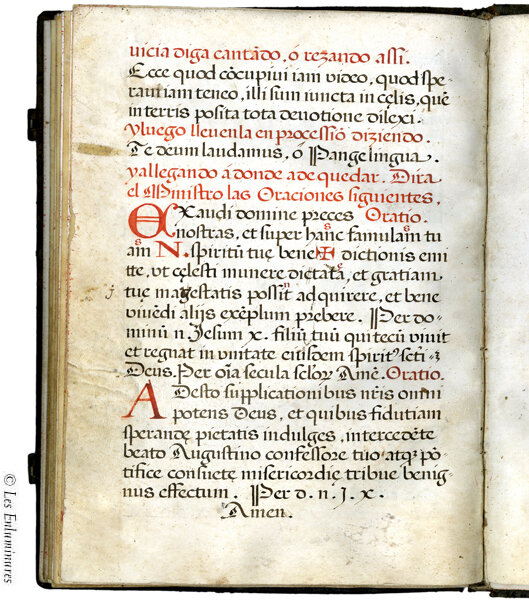 vicia diga cantādo, ó rezando assi.
Ecce quod cōcupiui iam video, quod spe-
raui iam teneo, illi sum iuncta in cęlis, quē
in terris posita tota deuotione dilexi.
Y luego lleuenla en processiō diziendo.
Te deum laudamus, ó Pange lingua.
y allegando á donde a de quedar. Dira
el Ministro las Oraciones siguientes.
EXaudi domine preces Oratio.
nostras, et super hanc famulam tu
am N. spiritū tuę bene✠dictionis emi
tte, vt cęlesti munere dictata, et gratiam
tuę magestatis possit adquirere, et bene
viuēdi alijs exēplum prebere. Per do-
minū n Jesum x. filiū tuū qui tecū viuit
et regnat in vnitate eiusdem spirit⁹ scti
Deus. Per oīa secula sclor Amē. Oratio.
ADesto supplicationibus nris omni
potens Deus, et quibus fidutiam
sperandę pietatis indulges, intercedēte
beato Augustino confessore tuo atq pō
tifice consuetę misericordię tribue benig
nus effectum. Per d. n. J. x.
Amen.
© Les Enluminures